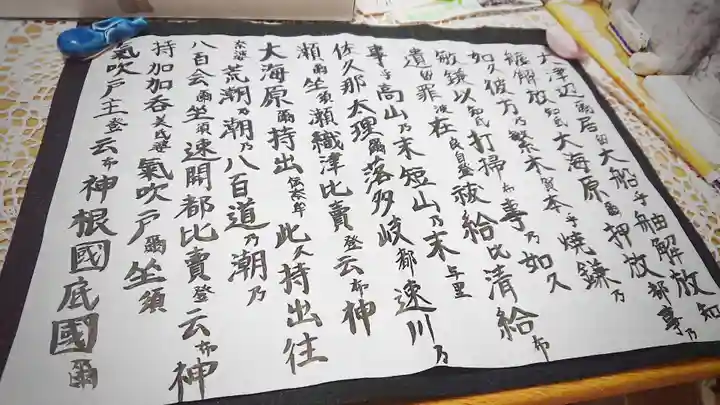 大津辺爾居留大船乎舳解放知
艫解放知氐大海原爾押放都事乃
如久彼方乃繁木賀本乎焼鎌乃
敏鎌以知氐打掃布事乃如久
遺留罪波在良自登祓給比清給布
事乎高山乃末短山乃末与里
佐久那太理爾落多岐都速川乃
瀬爾坐須瀬織津比賣登云布神
大海原爾持出伝奈牟此久持出往
奈婆荒潮乃潮乃八百道乃潮乃
八百会爾坐須速開都比賣登云布神
持加加呑美氐牟氣吹戸爾坐須
氣吹戸主登云布神根國底國爾